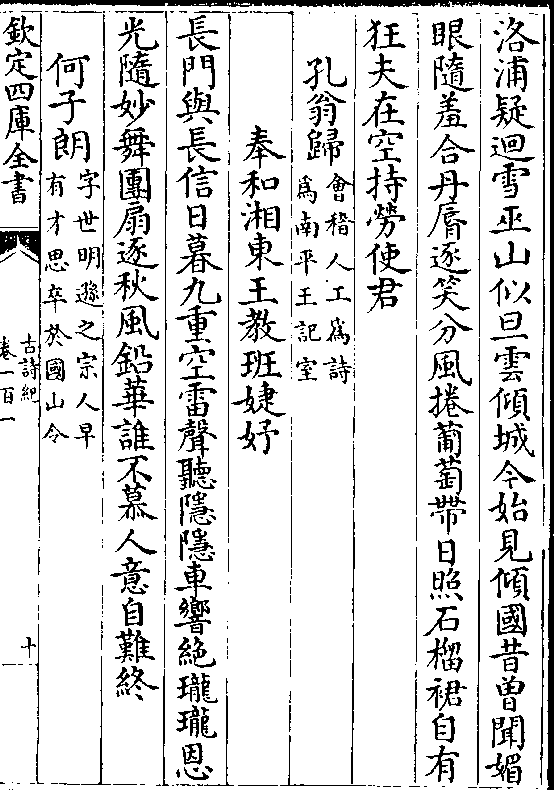 洛浦疑迴雪巫山似旦雲傾城今始見傾國昔曽聞媚
眼隨羞合丹脣逐笑分風捲葡萄帶日照石榴裙自有
狂夫在空持勞使君
孔翁歸
會稽人工爲詩
爲南平王記室
奉和湘東王教班婕妤
長門與長信日暮九重空雷聲聽隱隱車響絶瓏瓏恩
光隨妙舞團扇逐秋風鉛華誰不慕人意自難終
何子朗
字世明遜之宗人早
有才思卒於國山令
欽定四庫全書
古詩紀
卷一百一
十